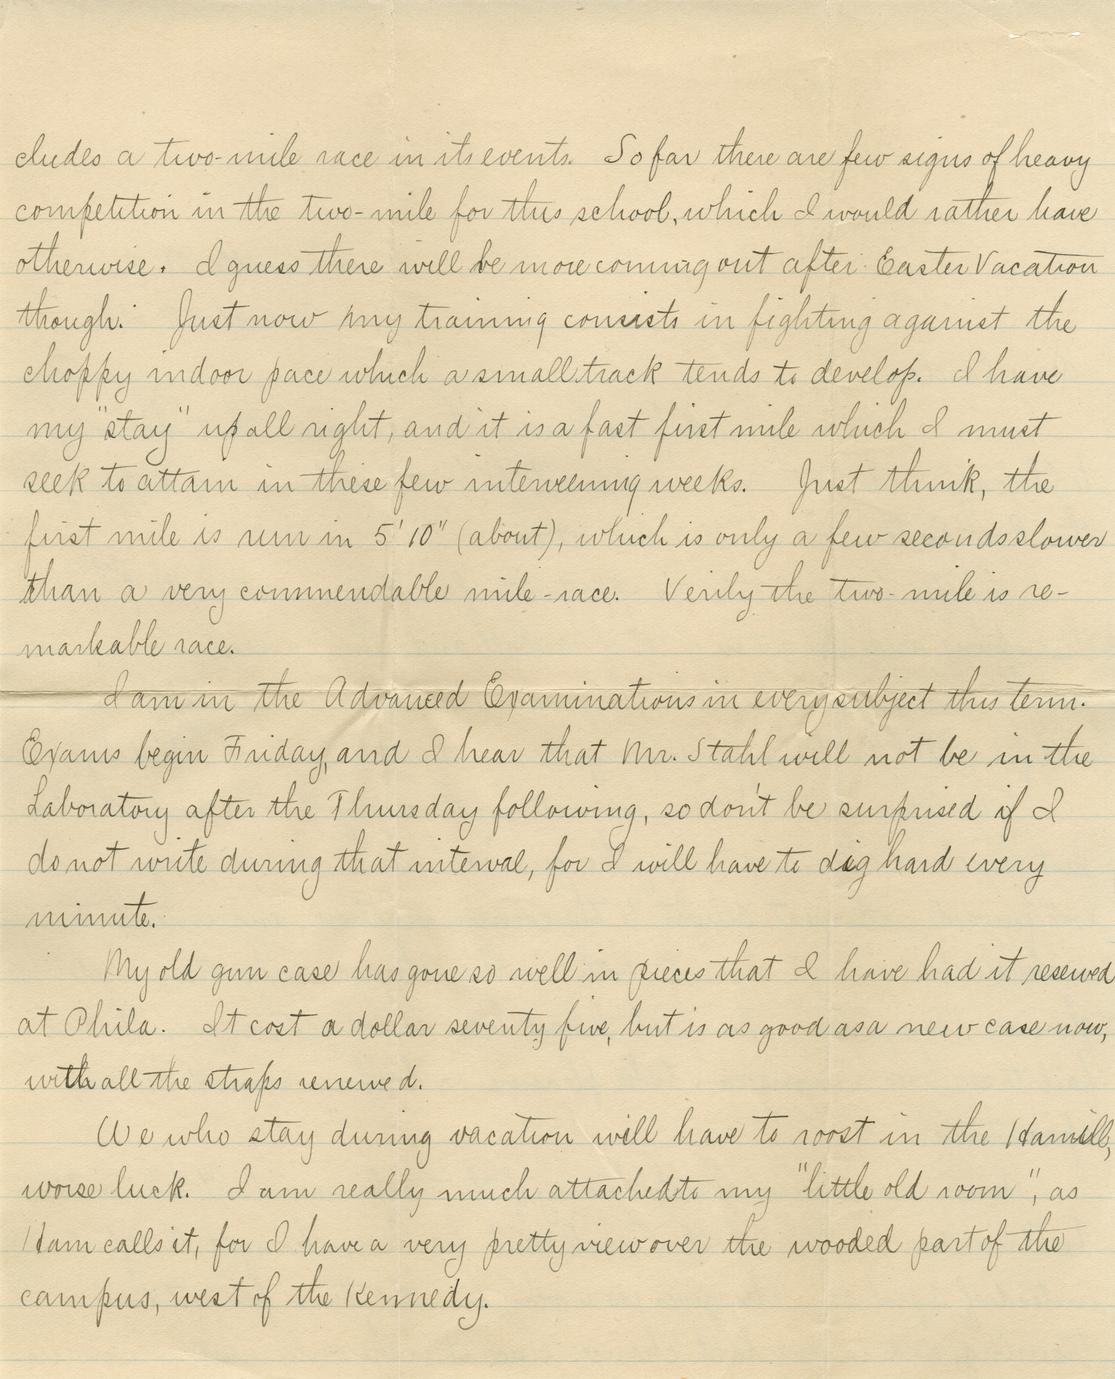 cludes a two-mile race in its events. So far there are few signs of heavy
competition in the two-mile for this school, which I would rather have
otherwise. I guess there will be more coming out after Easter Vacation
though. Just now my training consists in fighting against the
choppy indoor pace which a small track tends to develop. I have
my "stay" up all right, and it is a fast first mile which I must
seek to attain in these few interveening weeks. Just think, the
first mile is run in 5' 10" (about), which is only a few seconds slower
than a very commendable mile-race. Verily the two-mile is re-
markable race.
I am in the Advanced Examinations in every subject this term.
Exams begin Friday, and I hear that Mr. Stahl will not be in the
Laboratory after the Thursday following, so don't be surprised if I
do not write during that interval, for I will have to dig hard every
minute.
My old gun case has gone so well in pieces that I have had it resewed
at Phila. It cost a dollar seventy five, but is as good as a new case now,
with all the straps renewed.
We who stay during vacation will have to roost in the Hamill,
worse luck. I am really much attached to my "little old room", as
Ham calls it, for I have a very pretty view over the wooded part of the
campus, west of the Kennedy.